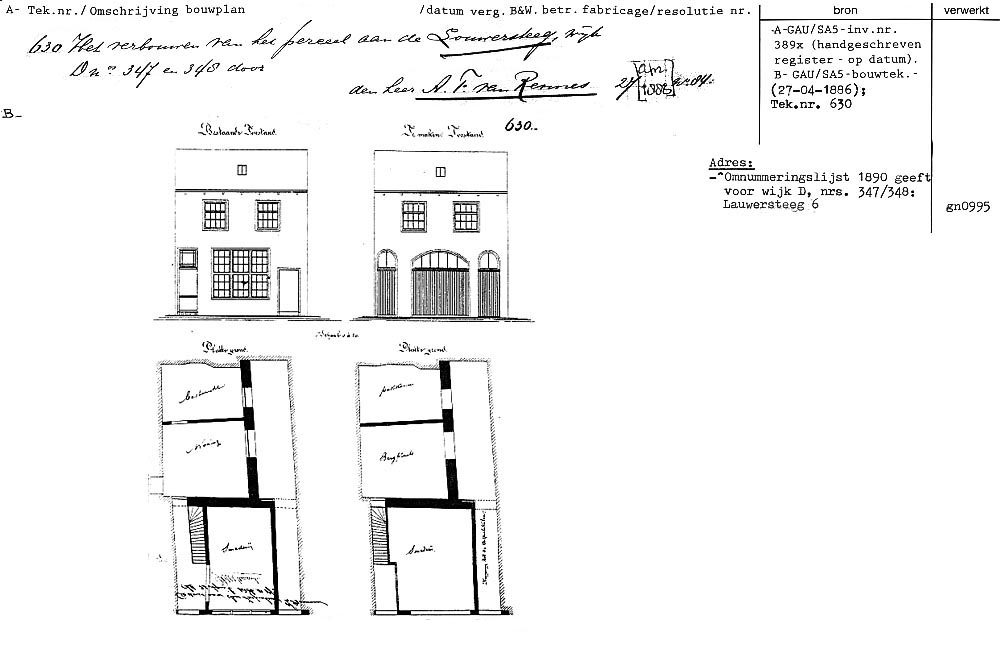 A- Tek.nr./ Omschrijving bouwplan
/datum verg. B&W. betr. fabricage/resolutie nr.
bron
verwerkt
630 Het verbouwen van het perceel aan de Louwersteeg, wijk
D nos 347 en 348 door
den heer A. F. van Rennes 27/4m 1886 nr 84.
-A-GAU/SA5-inv.nr.
389x (handgeschreven
register - op datum).
B- GAU/SA5-bouwtek.-
(27-04-1886);
Tek.nr. 630
B-
Adres:
-^Omnummeringslijst 1890 geeft
voor wijk D, nrs. 347/348:
Lauwersteeg 6
gn0995
Bestaande Toestand.
Te maken Toestand.
630.-
Platte grond.
Platte grond.
Woning
Bergplaats
Smederij
Smederij